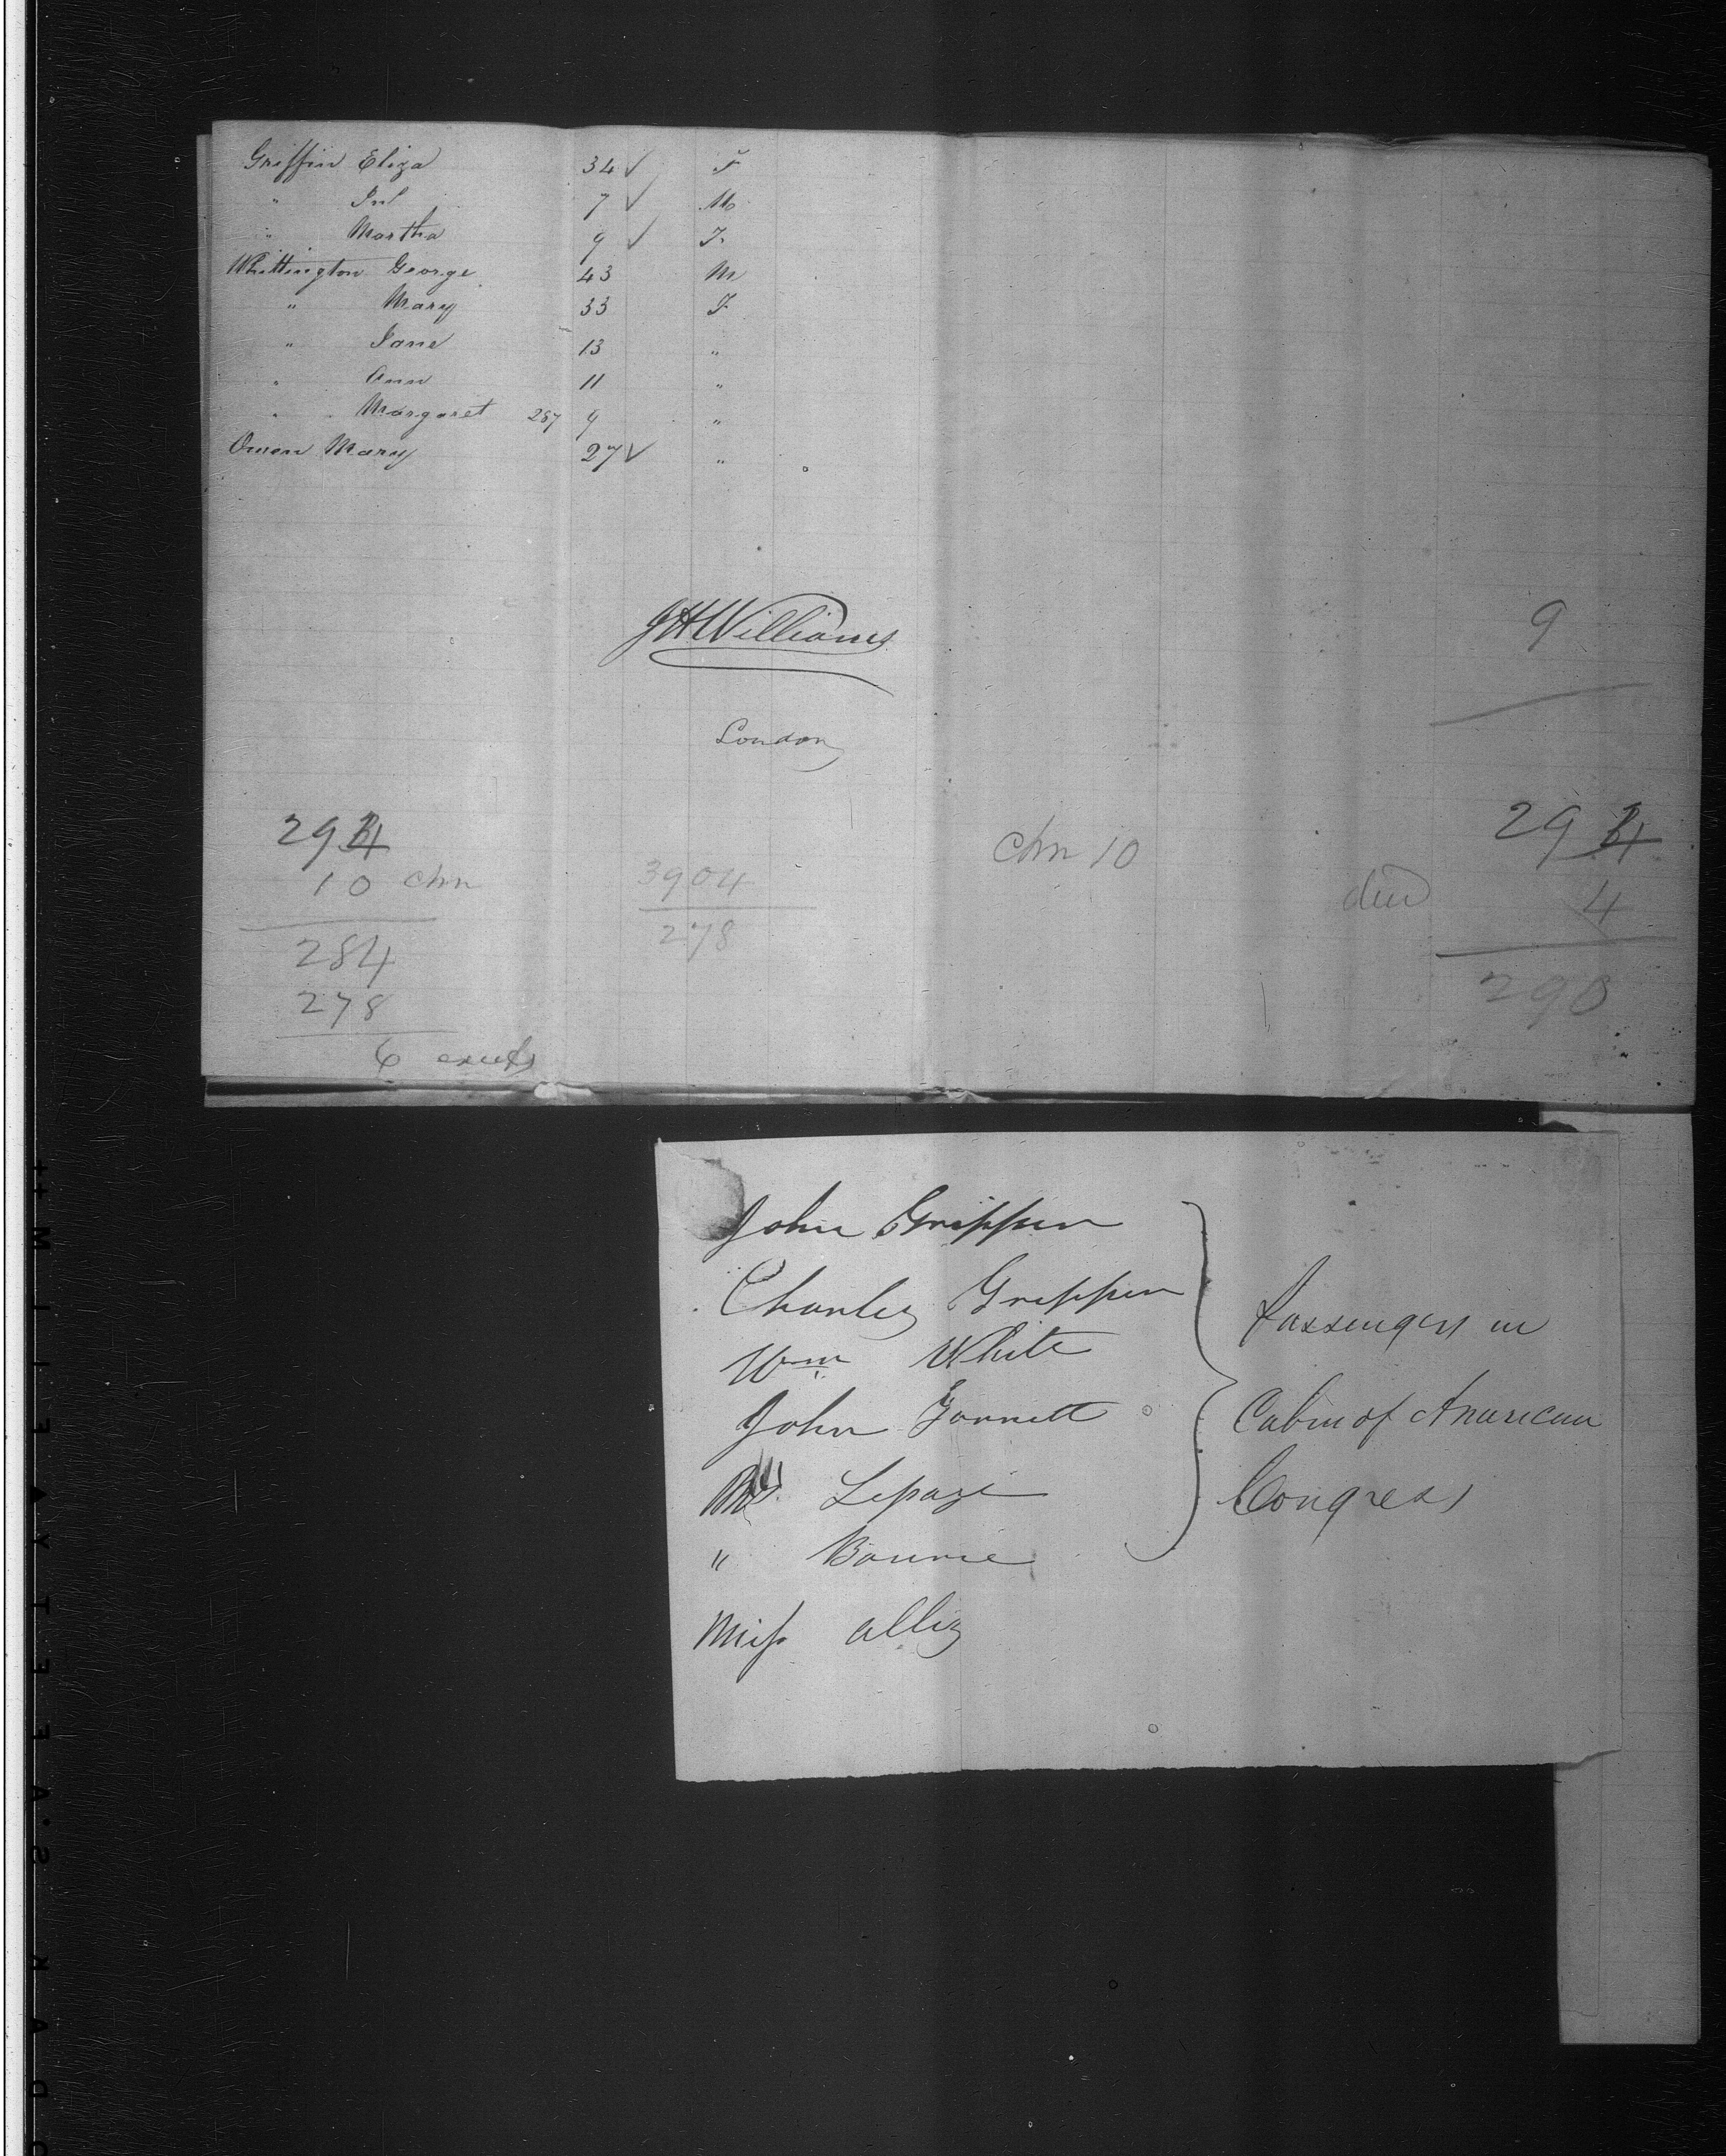 Griffin Eliza 34 ✓ F
" 7 ✓ M
" Martha 9 ✓ F
Whittington George 43 M
" Mary 33 F
" Jane 13 "
" Ann 11 "
" Margaret 287 9 "
Owen Mary 27 ✓ "
JHWilliams
London
9
294
10 chn
284
278
6
3904
278
chn 10
294
died 4
290
John Grippen
Charley Grippen
Wm White
John
Lepage
" Bourne
Miss
Passengers in
Cabin of American
Congress